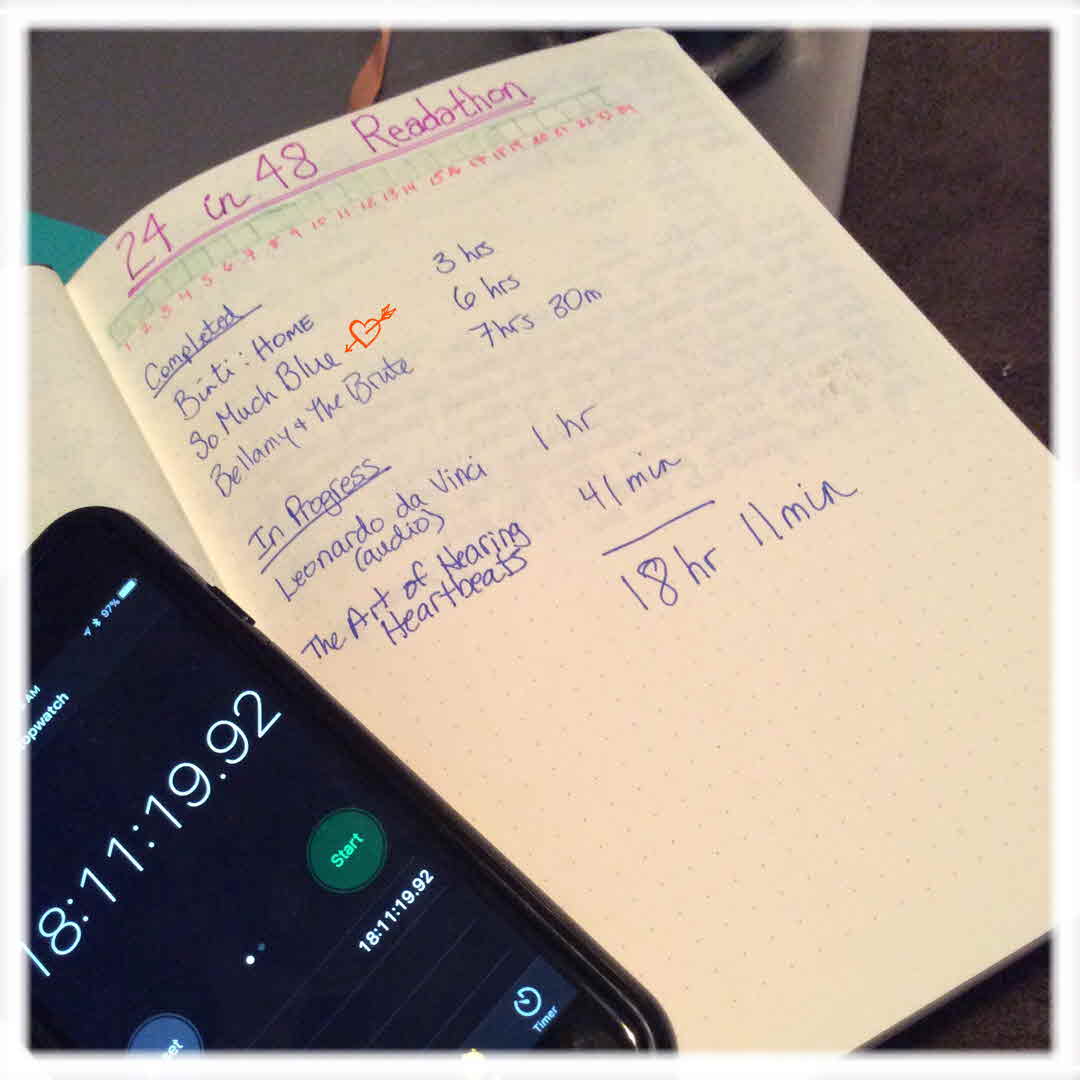 24 in 48 Readathon
1 2 3 4 5 6 7 8 9 10 11 12 13 14 15 16 17 18 19 20 21 22 23 24
Completed
Binti: HOME 3 hrs
So Much Blue 6 hrs
Bellamy & the Brute 7hrs 30m
In Progress
Leonardo da Vinci 1 hr
(audio)
The Art of Hearing 41 min
Heartbeats
18 hr 11 min
97%
AM
opwatch
18:11:19.92
Start
18:11:19.92
Timer